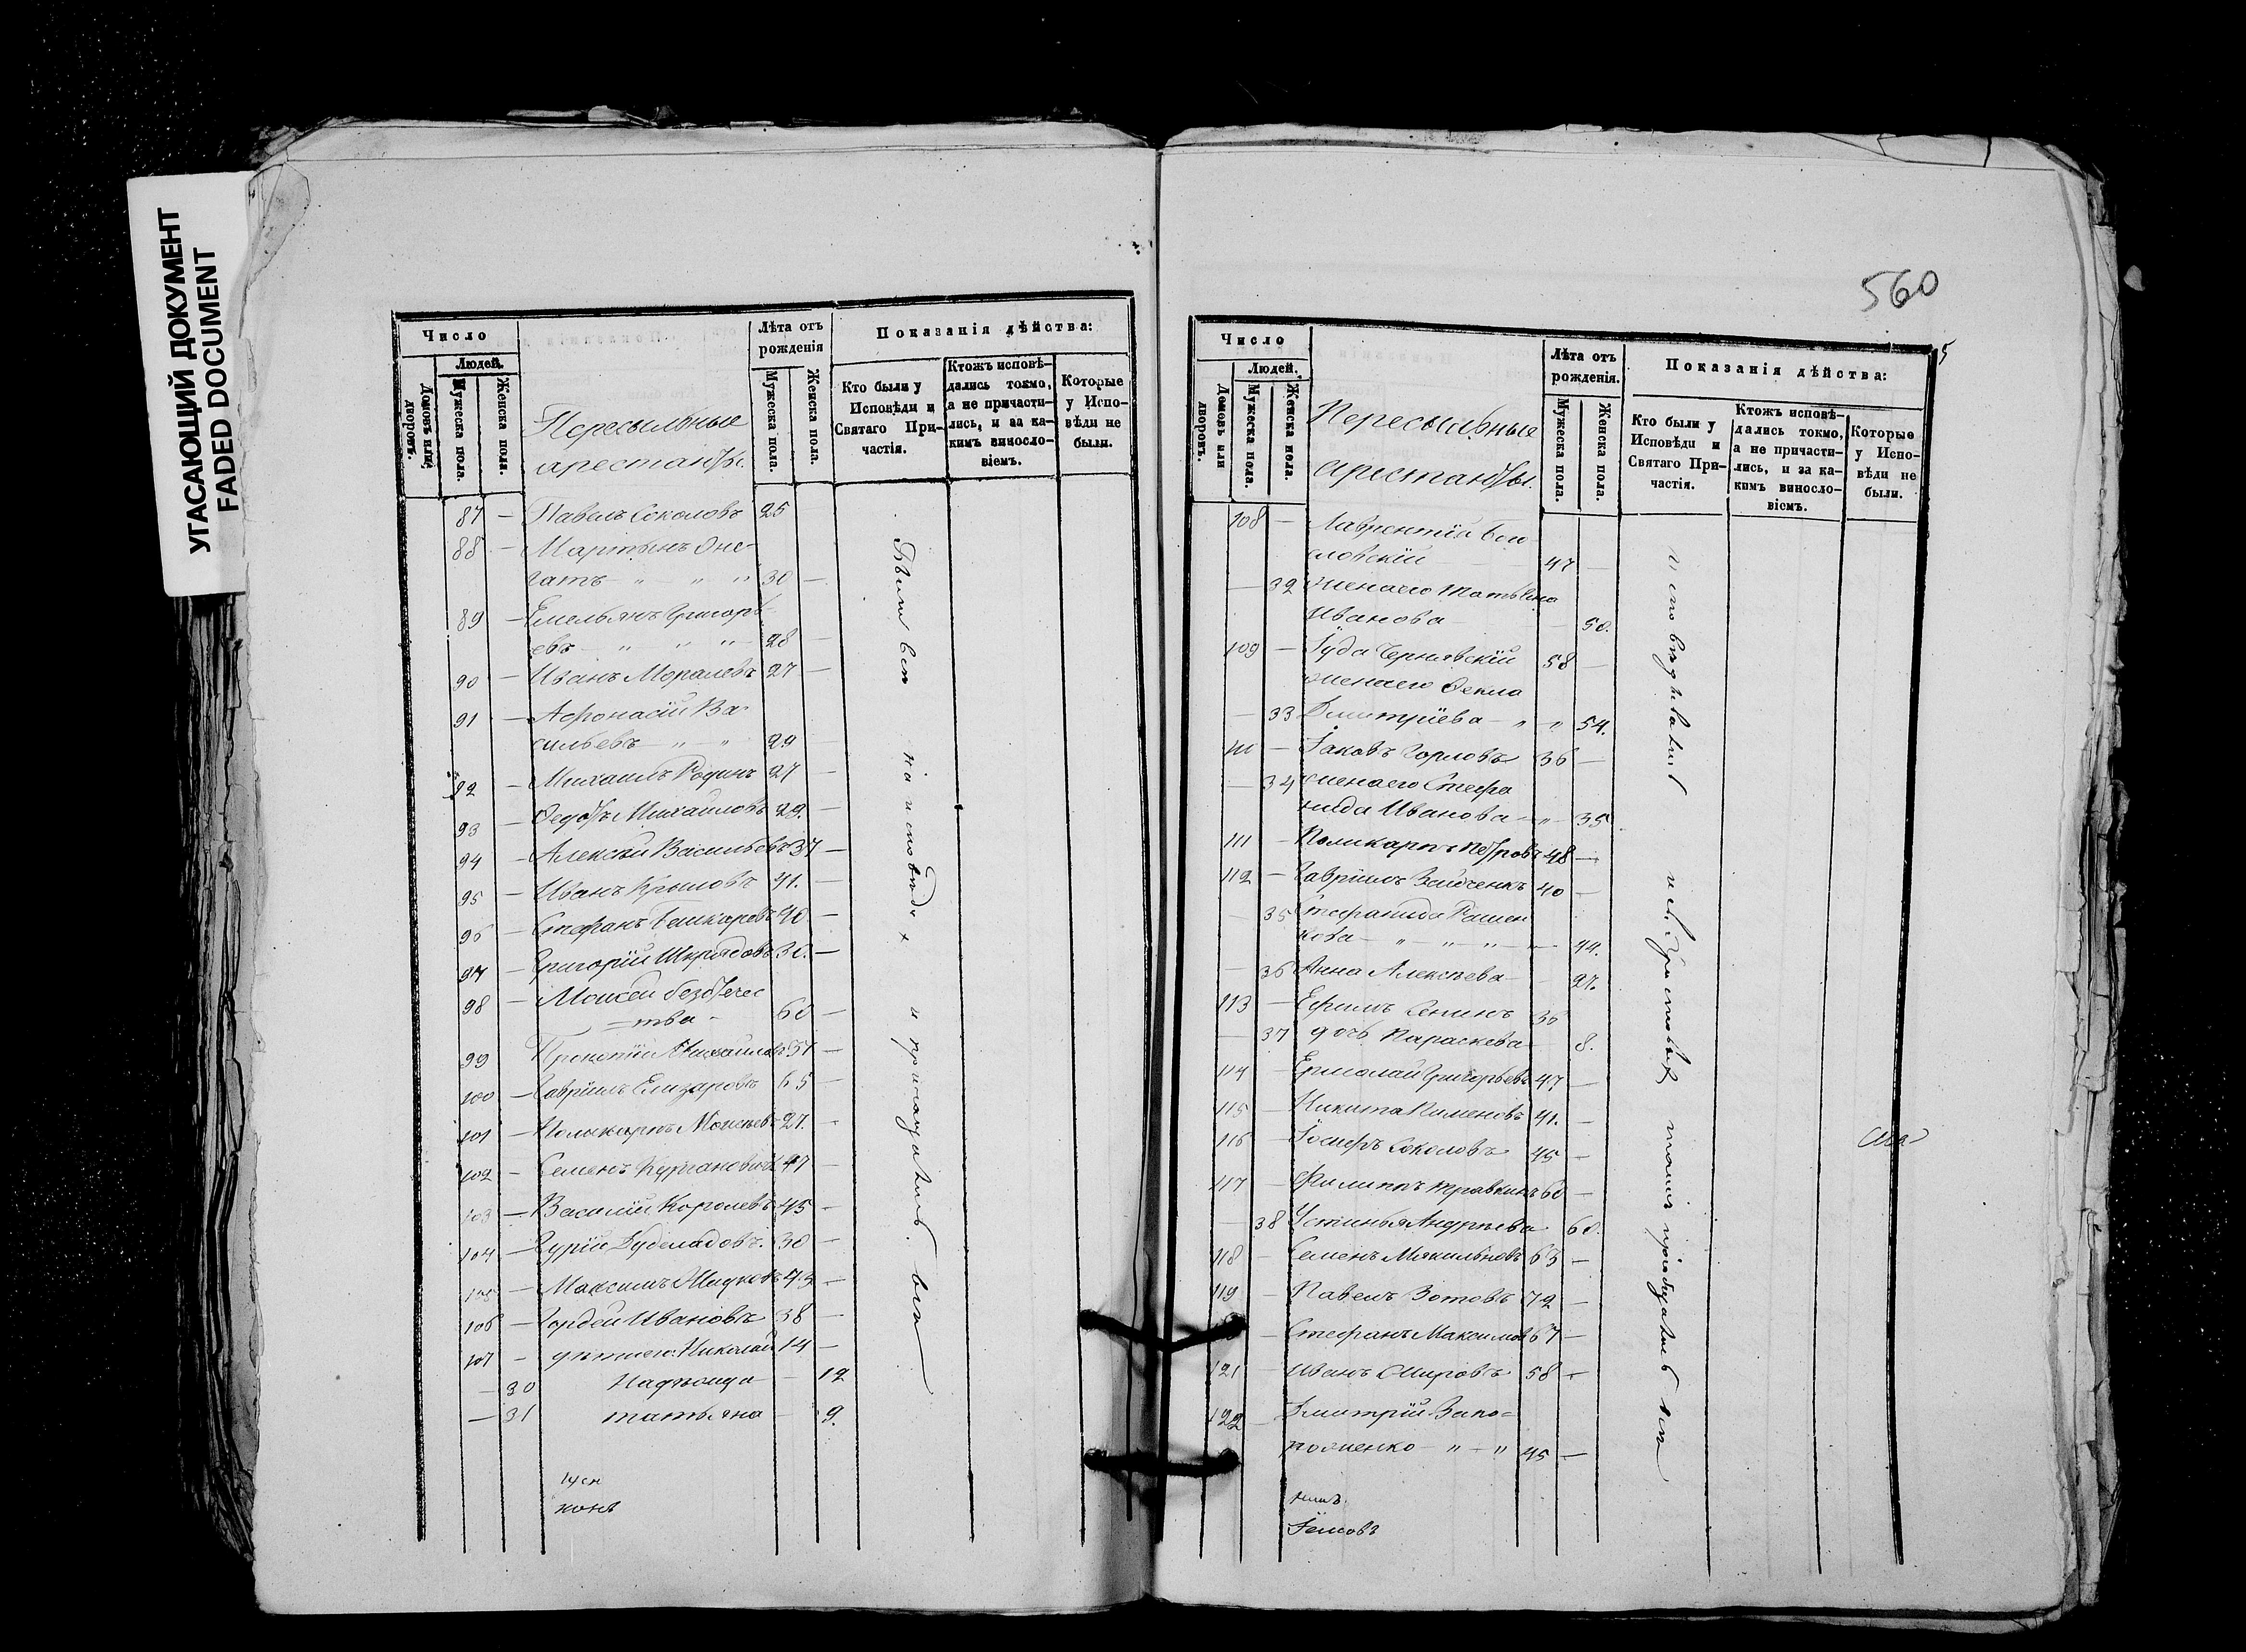 УГАСАЮЩИЙ ДОКУМЕНТ
FADED DOCUMENT
Число
Людей.
Домовъ или дворовъ.
Мужеска пола.
Женска пола.
Пересыльные
арестанты.
Лѣта отъ
рожденія
Мужеска пола.
Женска пола.
Показанія дѣйства:
Кто были у
Исповѣди и
Святаго При-
частія.
Ктожъ исповѣ-
дались токмо,
а не причасти-
лись, и за ка-
кимъ виносло-
віемъ.
Которые
у Испо-
вѣди не
были.
87 — Павелъ Соколовъ 25
88 — Мартынъ Оне-
гатъ — " — " — " 30 —
89 — Емельянъ Григорь-
евъ — " — " — " 28 —
90 — Иванъ Моралевъ 27 —
91 — Афонасій Ва-
сильевъ — " — " 29 —
92 — Михаилъ Родинъ 27 —
93 — Федотъ Михаиловъ 29. —
94 — Алексѣй Васильевъ 37 —
95 — Иванъ Крыловъ 41. —
96 — Стефанъ 40 —
97 — Григорій —
98 — Моисей безотечес
=тва — 60 —
99 Прокопій Михаиловъ —
100 — Гавріилъ Елизаровъ 65 —
101 — Поликарпъ Моисѣевъ 27. —
102 — Семенъ 47 —
103 — Василій Королевъ 45 —
104 — Гурій 30 —
105 — Максимъ Жидковъ 43 —
106 — Гордей Ивановъ 38 —
107 — дѣти его: Николай 14 —
— 30 Надежда — — 12
— 31 татьяна — 9.
Были всѣ на исповѣдѣ и причащались всѣ
560
Число
Людей.
Домовъ или дворовъ.
Мужеска пола.
Женска пола.
Пересыльные
арестанты.
Лѣта отъ
рожденія.
Мужеска пола.
Женска пола.
Показанія дѣйства:
Кто были у
Исповѣди и
Святаго При-
частія.
Ктожъ исповѣ-
дались токмо,
а не причасти-
лись, и за ка-
кимъ виносло-
віемъ.
Которые
у Испо-
вѣди не
были.
108 — Лаврентій
словскій — 47 —
— 32 жена его Татьяна
Иванова — — 50.
109 — Іуда Чернявскій 58 —
жена его Фекла
— 33 Дмитріева — " — " 54.
110 — Іаковъ Горловъ 36 —
— 34 жена его Стефа
нида Иванова — " — 35
111 — Поликарпъ Петровъ 48 —
112 — Гавріилъ 40 —
— 35 Стефанида
кова — " — " — " — 44.
— 36 Анна Алексѣева — 27.
113 — Ефимъ Сенинъ 36
— 37 дочь Параскева — 8.
114 — Ермолай Григорьевъ 47 —
115 — Никита Пименовъ 41. —
116 — Іосифъ Соколовъ 45 —
117 — Филиппъ травкинъ 60 —
— 38 Устинья Андреева 60.
118 — Семенъ 63 —
119 — Павелъ Зотовъ 72 —
— Стефанъ Максимовъ 67 —
121 — Иванъ 58 —
122 — Дмитрій Запо=
рожченко — " — " 45 —